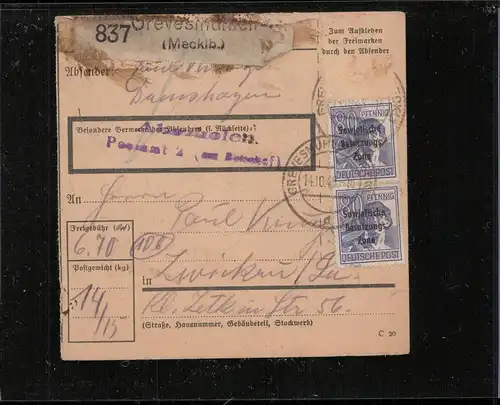 837
Grevesmühlen
(Mecklb.)
Zum Aufkleben
der Freimarken
durch den Absender
Absender:
Damshagen
Besondere Vermerke des Absenders (s. Rückseite):
Abzuholen.
Postamt 2 (am Bahnhof)
An
Herrn
Paul
Freigebühr
6.70
Postgewicht (kg)
14/15
in
Zwickau/Sa.
Kl. Zetkin Str 56.
(Straße, Hausnummer, Gebäudeteil, Stockwerk)
C 20
80 PFENNIG
Sowjetische
Besatzungs
Zone
DEUTSCHE POST
80 PFENNIG
Sowjetische
Besatzungs
Zone
DEUTSCHE POST
GREVESMÜHLEN
14.10.4